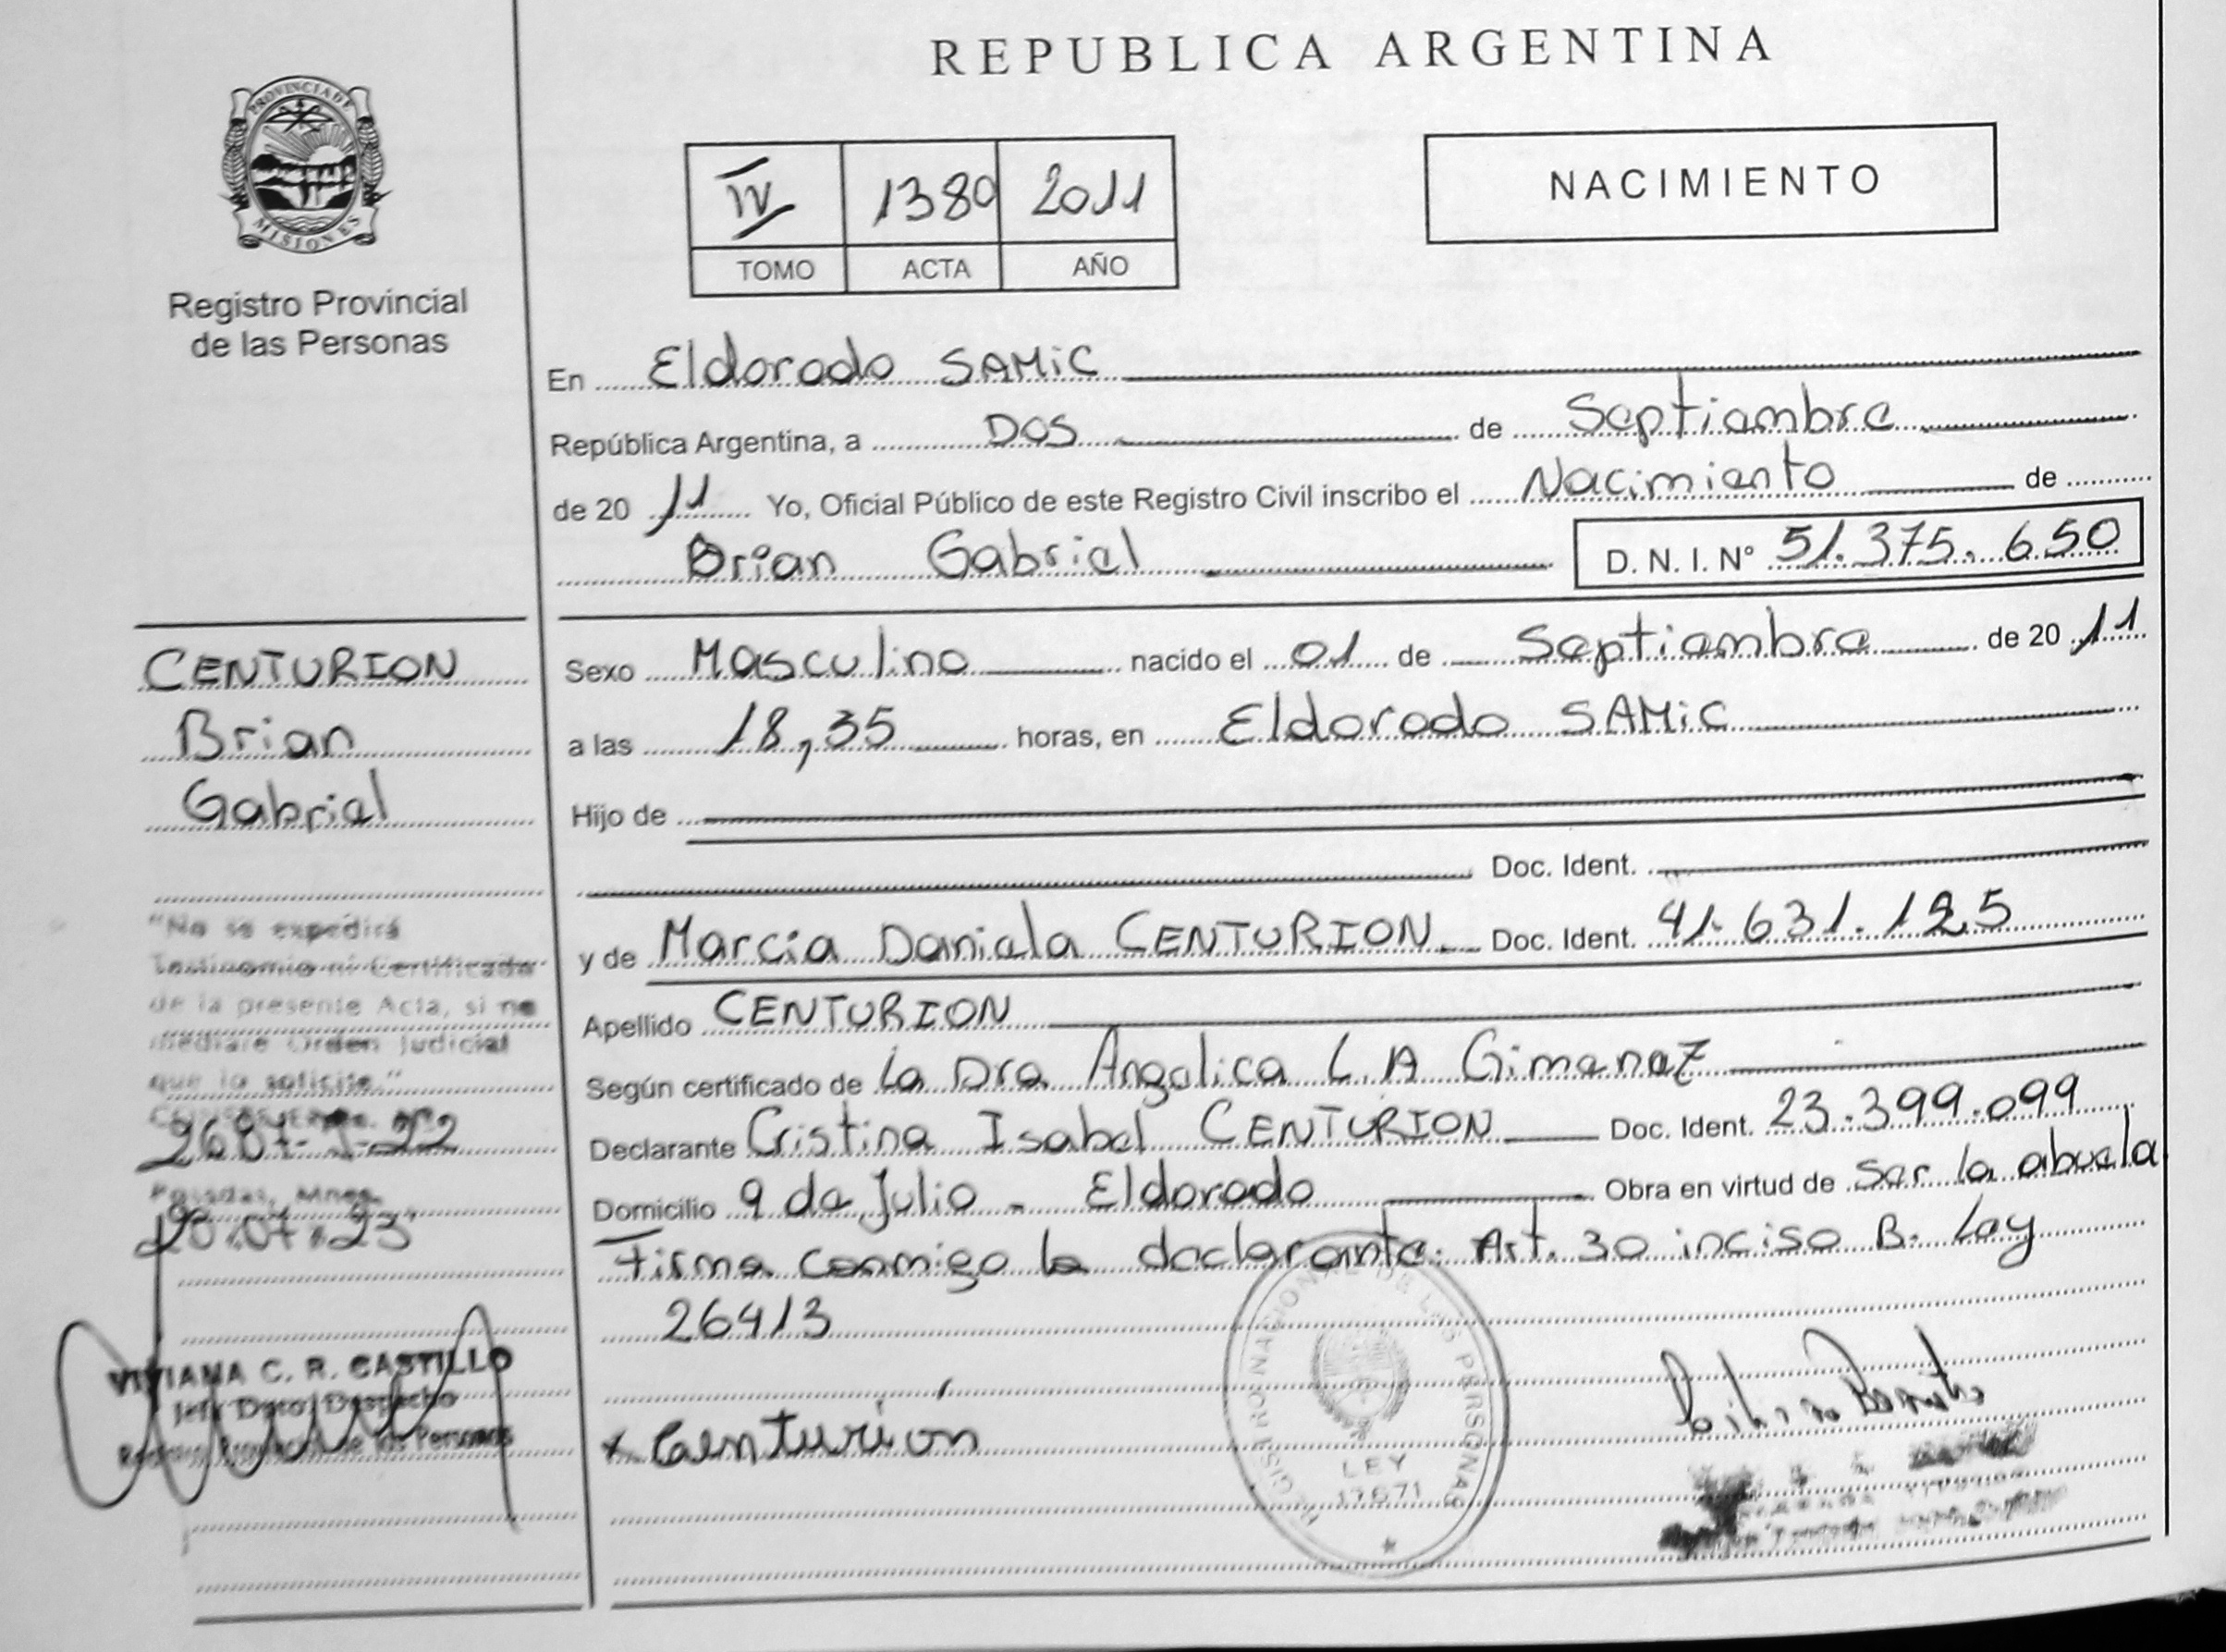 REPUBLICA ARGENTINA
PROVINCIA DE
MISIONES
Registro Provincial
de las Personas
IV 1380 2011
TOMO ACTA AÑO
NACIMIENTO
En Eldorado SAMiC
República Argentina, a DOS de Septiembre
de 20 11 Yo, Oficial Público de este Registro Civil inscribo el Nacimiento de
Brian Gabriel D. N. I. N° 51.375.650
CENTURION
Brian
Gabriel
"No se expedirá
Testimonio ni Certificado
de la presente Acta, si no
mediare Orden Judicial
que lo solicite."
Posadas, Mnes.
VIVIANA C. R. CASTILLO
Jefe Dpto. Despacho
Registro Provincial de las Personas
Sexo Masculino nacido el 01 de Septiembre de 20 11
a las 18,35 horas, en Eldorado SAMiC
Hijo de
Doc. Ident.
y de Marcia Daniela CENTURION Doc. Ident. 41.631.125
Apellido CENTURION
Según certificado de la Dra Angelica L.A Gimenez
Declarante Cristina Isabel CENTURION Doc. Ident. 23.399.099
Domicilio 9 de Julio - Eldorado Obra en virtud de ser la abuela
Firma conmigo la declarante. Art. 30 inciso B. Ley
26413
x Centurión
REGISTRO NACIONAL DE LAS PERSONAS
LEY
17671